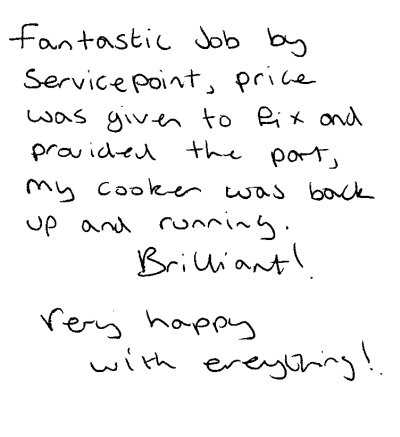 Fantastic Job by
Servicepoint, price
was given to fix and
provided the part,
my cooker was back
up and running.
Brilliant!
Very happy
with everything!